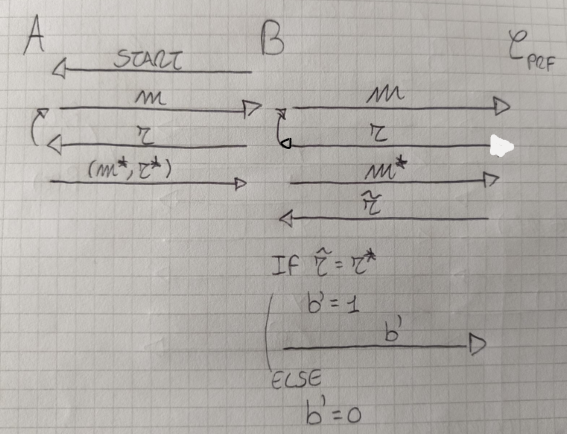 A B C_PRF
START
m m
τ τ
(m*, τ*) m*
τ̃
If τ̃ = τ*
b' = 1
b'
ELSE
b' = 0